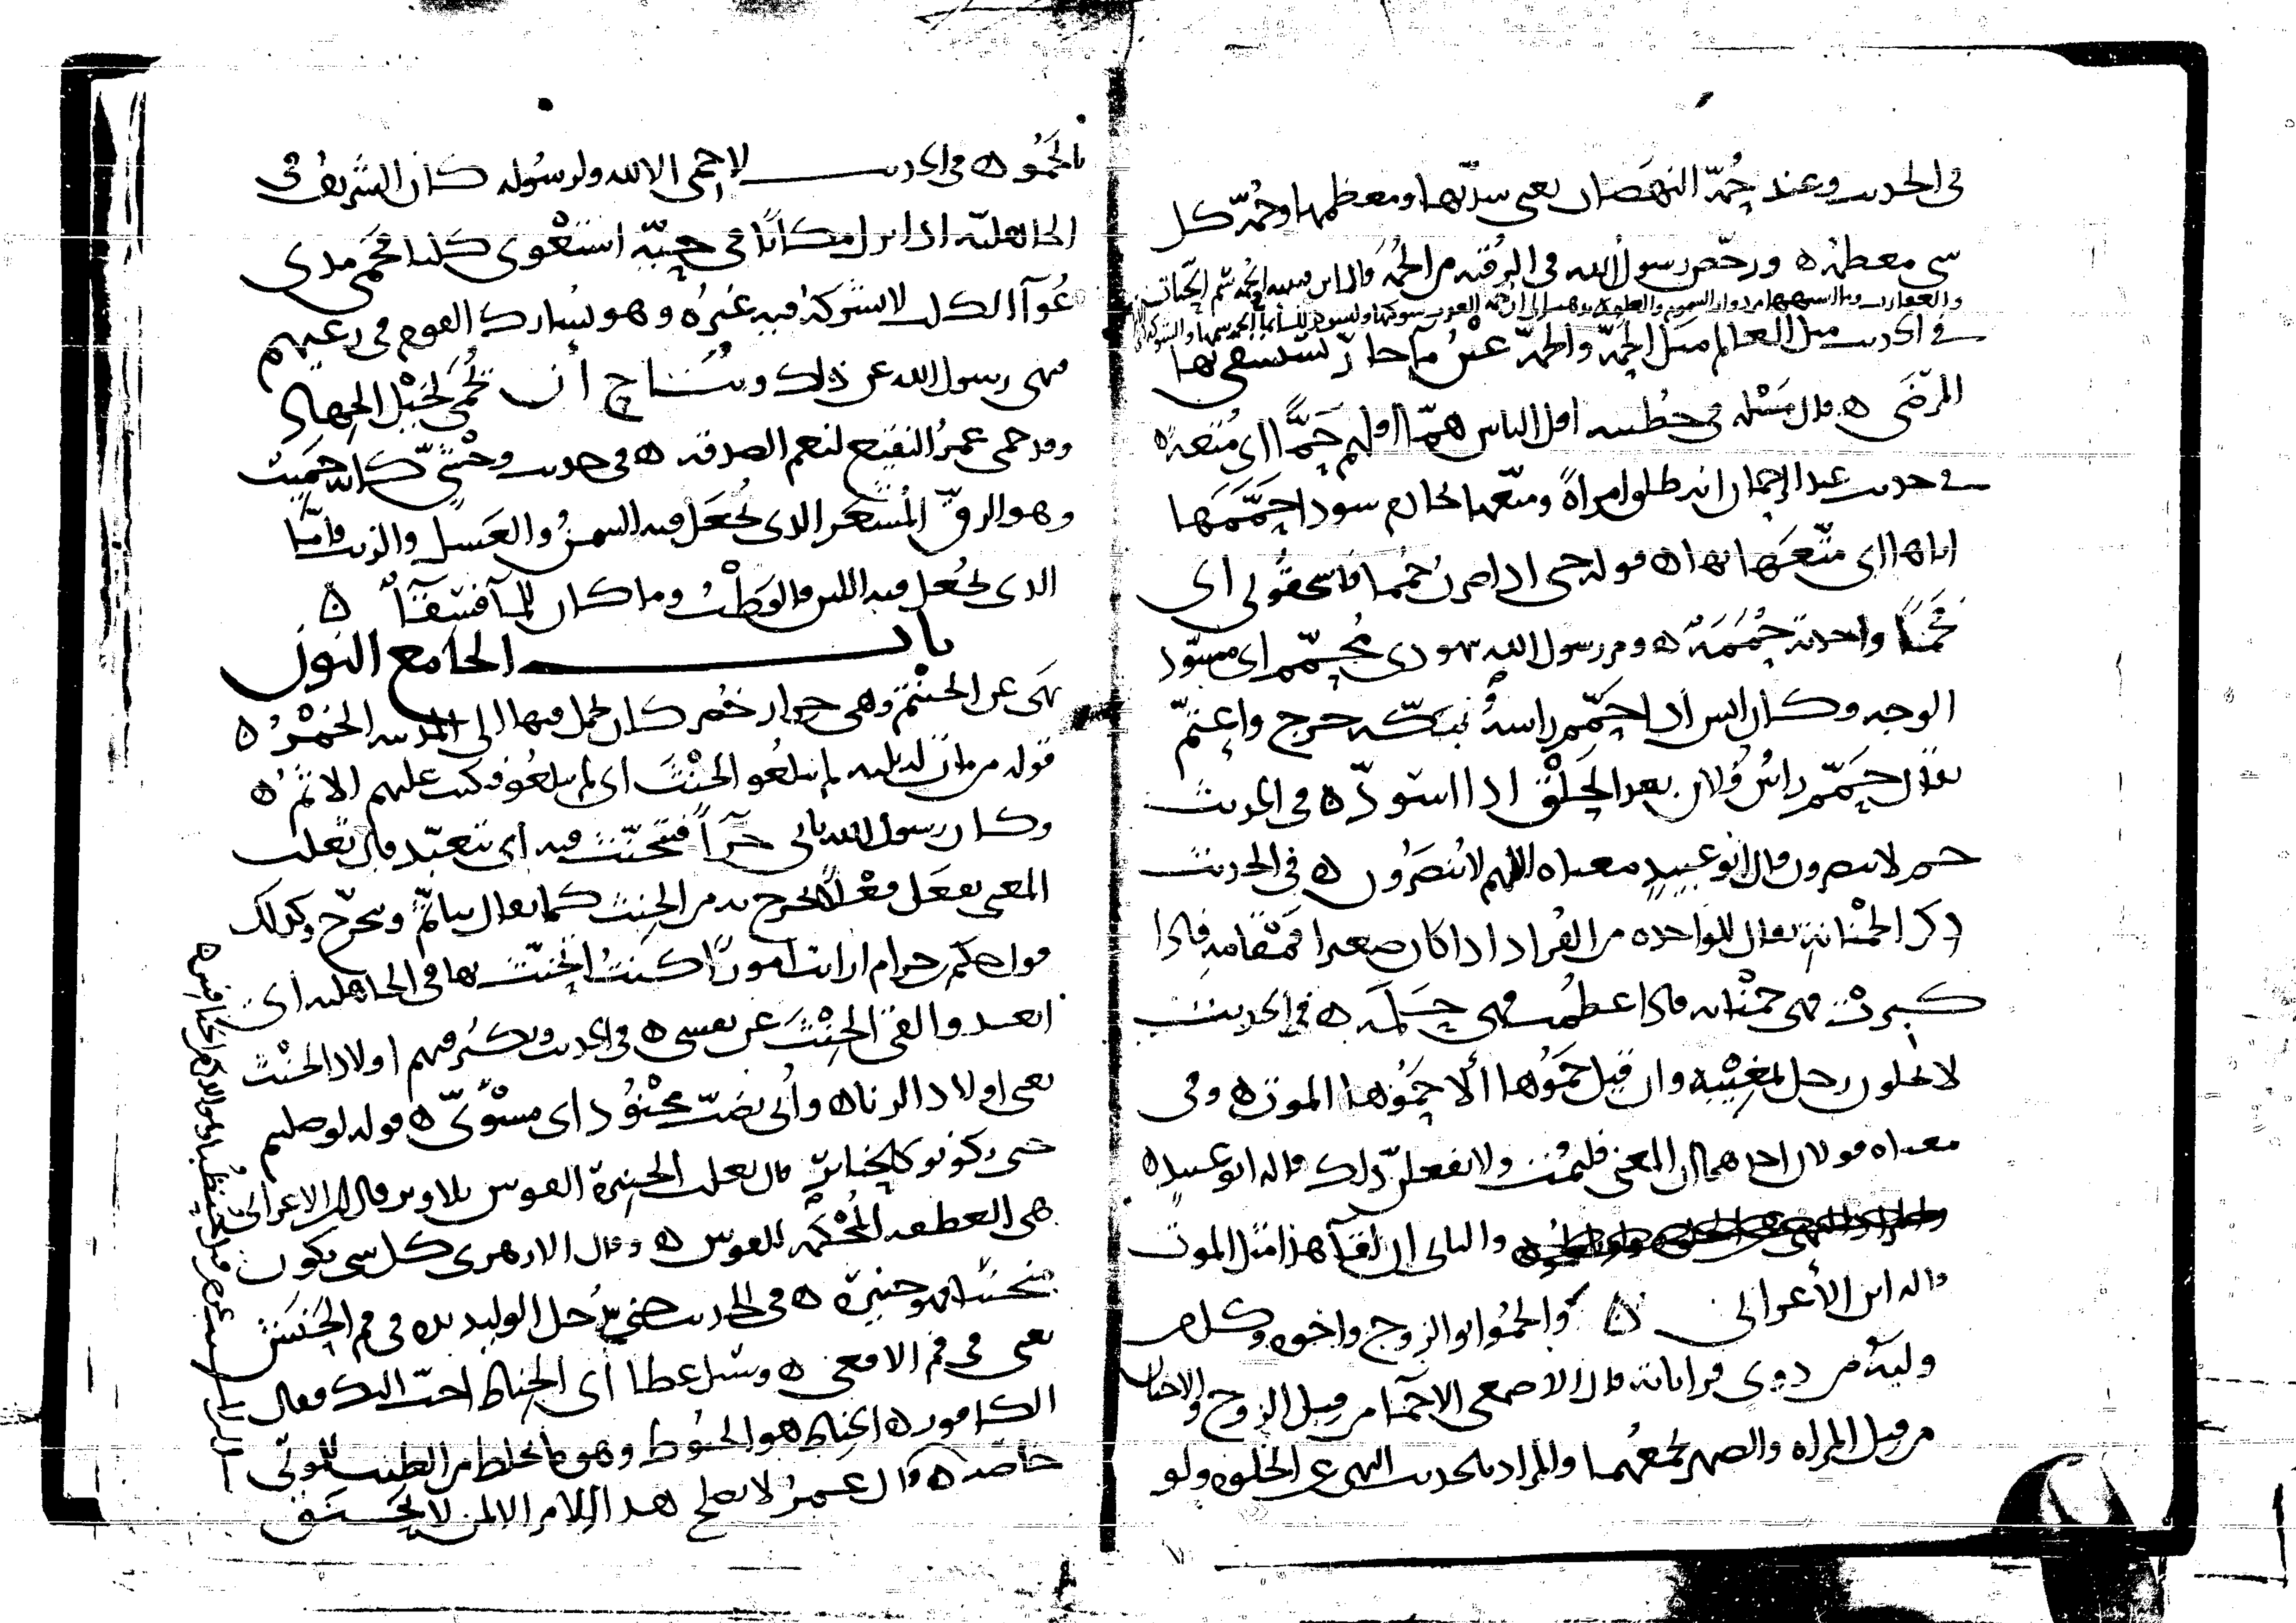 في الحديث وعند حُمّة النهضات يعني شدتها ومعظمها وحُمّة كل
شي معظمه ه ورخّص رسول الله في الرُقية من الحُمَة قال ابن قتيبة الحُمَة سُمّ الحيّات
والعقارب وما اشبهها من ذوات السموم
في الحديث مثل العالم مثل الحَمّة والحَمّة عينُ ماء حارّ يستشفي بها
المرضَى ه قال مَسْلمة في خطبته اقل الناس همّا اقلهم حَمًّا اي مُتعة ه
في حديث عبد الرحمان انه طلق امراةً ومتّعها بخادم سودا حَمَّمَها
اياها اي متّعَها بها ه قوله حتى اذا صرت حُمما فاسحقوني اي
فحمًا واحدته حُمَمَة ه ومر رسول الله بيهودي مُحمّم اي مسوّد
الوجه وكان انس اذا حمّم راسهُ بمكّة خرج واعتمّ
يقال حَمّم راسُ فُلان بعد الحَلْق اذا اسودّ ه في الحديث
حم لا ينصرون قال ابو عبيدٍ معناه اللهم لا يُنصَرُون ه في الحديث
ذكر الحَمْنانة يقال للواحدة من القُراد اذا كان صغيرا قمقامة فاذا
كبرت فهي حمْنانه فاذا عظمت فهي حَلَمَة ه في الحديث
لا يخلون رجل بمُغِيْبة وان قيل حَمُوها ألا حَمُوها الموت ه وفي
معناه قولان احدهما ان المعنى فليمُت ولا يفعلنّ ذلك قاله ابو عبيد ه
والثاني ان لقآ هذا مثل الموت
قاله ابن الأعرابي ه والحمُو ابو الزوج واخوه وكل من
وليَهُ من ذوي قراباته قال الاصمعي الاحمآ من قبل الزوج والاختان
من قبل المراه والصهر يجمعُهما والمراد بالحديث النهي عن الخلوه ولو
بالحَمُو ه في الحديث لا حِمى الا لله ولرسُوله كان الشريفُ في
الجاهليّة اذا نزل مكانًا في حيّه استَعْوى كلبا فحَمى مدى
عُوآ الكلب لا يَشركهُ فيه غيرُه وهو يُشارك القوم في رعيهم
فنهى رسول الله عن ذلك ويُباح أن تُحمى لخيْل الجهاد
وقد حمى عمرُ النقيع لنعم الصدقة ه في حديث وحْشيّ كانّه حَميت
وهو الزقّ المُشعَر الذي يُجعَل فيه السمنُ والعَسل والزيت فامّا
الذي يُجعل فيه اللبن فالوَطْبُ وما كان للمآ فسِقَآءٌ ه
باب الحا مع النون
نهَى عن الحَنْتَم وهي جرار خُضر كان يُحمل فيها الى المدينه الخَمْرُ ه
قوله من مات له ثلثه لم يبلغُو الحِنْثَ اي لم يبلغُو فيكتب عليهم الاثمُ ه
وكان رسول الله ياتي حِرآءً فيَتَحنّثُ فيه أي يتعبّد قال ثعلب
المعنى يفعَل فعْلًا يخرج به من الحِنث كما يقال يتاثّمُ ويتحرّج وكذلك
قول حكيم بن حزام ارايت امورًا كنتُ اتحنّث بها في الجاهليه اي
ابعد والقي الحِنْثَ عن نفسي ه في الحديث ويكثُر فيهم اولاد الحنْث
يعني اولاد الزنا ه وأُتي بضَبّ محْنُوذ اي مشويّ ه قوله لو صليتم
حتى تكونو كالحنايرّ قال ثعلب الحَنيرة القوس بلا وتر وقال ابن الاعرابي
هي العطفه المُحْكمة للقوس ه وقال الازهري كل شي يكون
منحنيًا فهو حنيرة ه في الحديث حتى يُدخل الوليد يده في فم الحَنَش
يعني في فم الافعى ه وسُئل عطا أي الحِناط احبّ اليك فقال
الكافور ه الحِناط هو الحَنُوط وهو ما يُخلط من الطيب للموتى
خاصّه ه قال عمرُ لا يصلح هذا الامر الا لمن لا يُحنَق